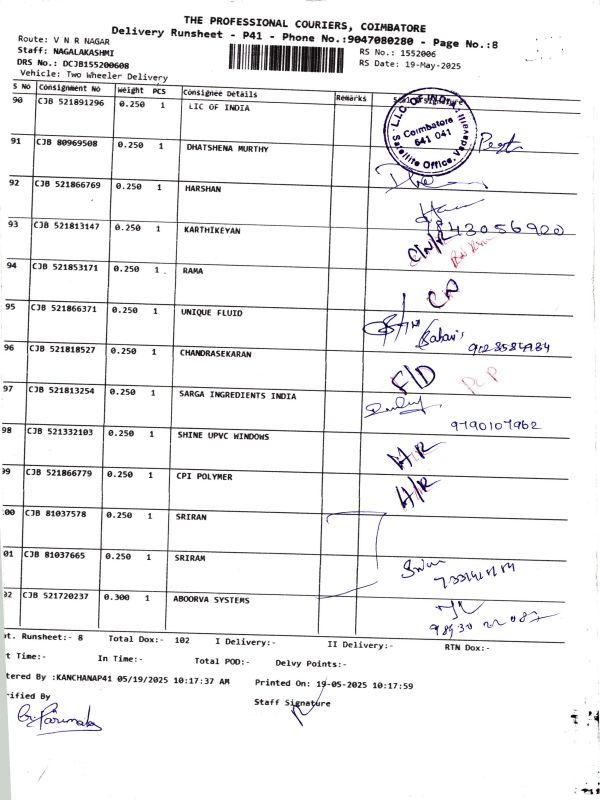 THE PROFESSIONAL COURIERS, COIMBATORE
Delivery Runsheet - P41 - Phone No.:9047080280 - Page No.:8
Route: V N R NAGAR
Staff: NAGALAKASHMI
RS No.: 1552006
DRS No.: DCJB155200608
RS Date: 19-May-2025
Vehicle: Two Wheeler Delivery
S No Consignment No Weight PCS Consignee Details Remarks
90 CJB 521891296 0.250 1 LIC OF INDIA
L.I.C. OF INDIA
Coimbatore
641 041
Satellite Office,
91 CJB 80969508 0.250 1 DHATSHENA MURTHY
92 CJB 521866769 0.250 1 HARSHAN
93 CJB 521813147 0.250 1 KARTHIKEYAN
94 CJB 521853171 0.250 1 RAMA
95 CJB 521866371 0.250 1 UNIQUE FLUID
96 CJB 521818527 0.250 1 CHANDRASEKARAN
F/D
97 CJB 521813254 0.250 1 SARGA INGREDIENTS INDIA
9790107962
98 CJB 521332103 0.250 1 SHINE UPVC WINDOWS
H/R
99 CJB 521866779 0.250 1 CPI POLYMER
H/R
00 CJB 81037578 0.250 1 SRIRAN
01 CJB 81037665 0.250 1 SRIRAM
02 CJB 521720237 0.300 1 ABOORVA SYSTEMS
ot. Runsheet:- 8 Total Dox:- 102 I Delivery:- II Delivery:- RTN Dox:-
t Time:- In Time:- Total POD:- Delvy Points:-
tered By :KANCHANAP41 05/19/2025 10:17:37 AM Printed On: 19-05-2025 10:17:59
rified By
Staff Signature